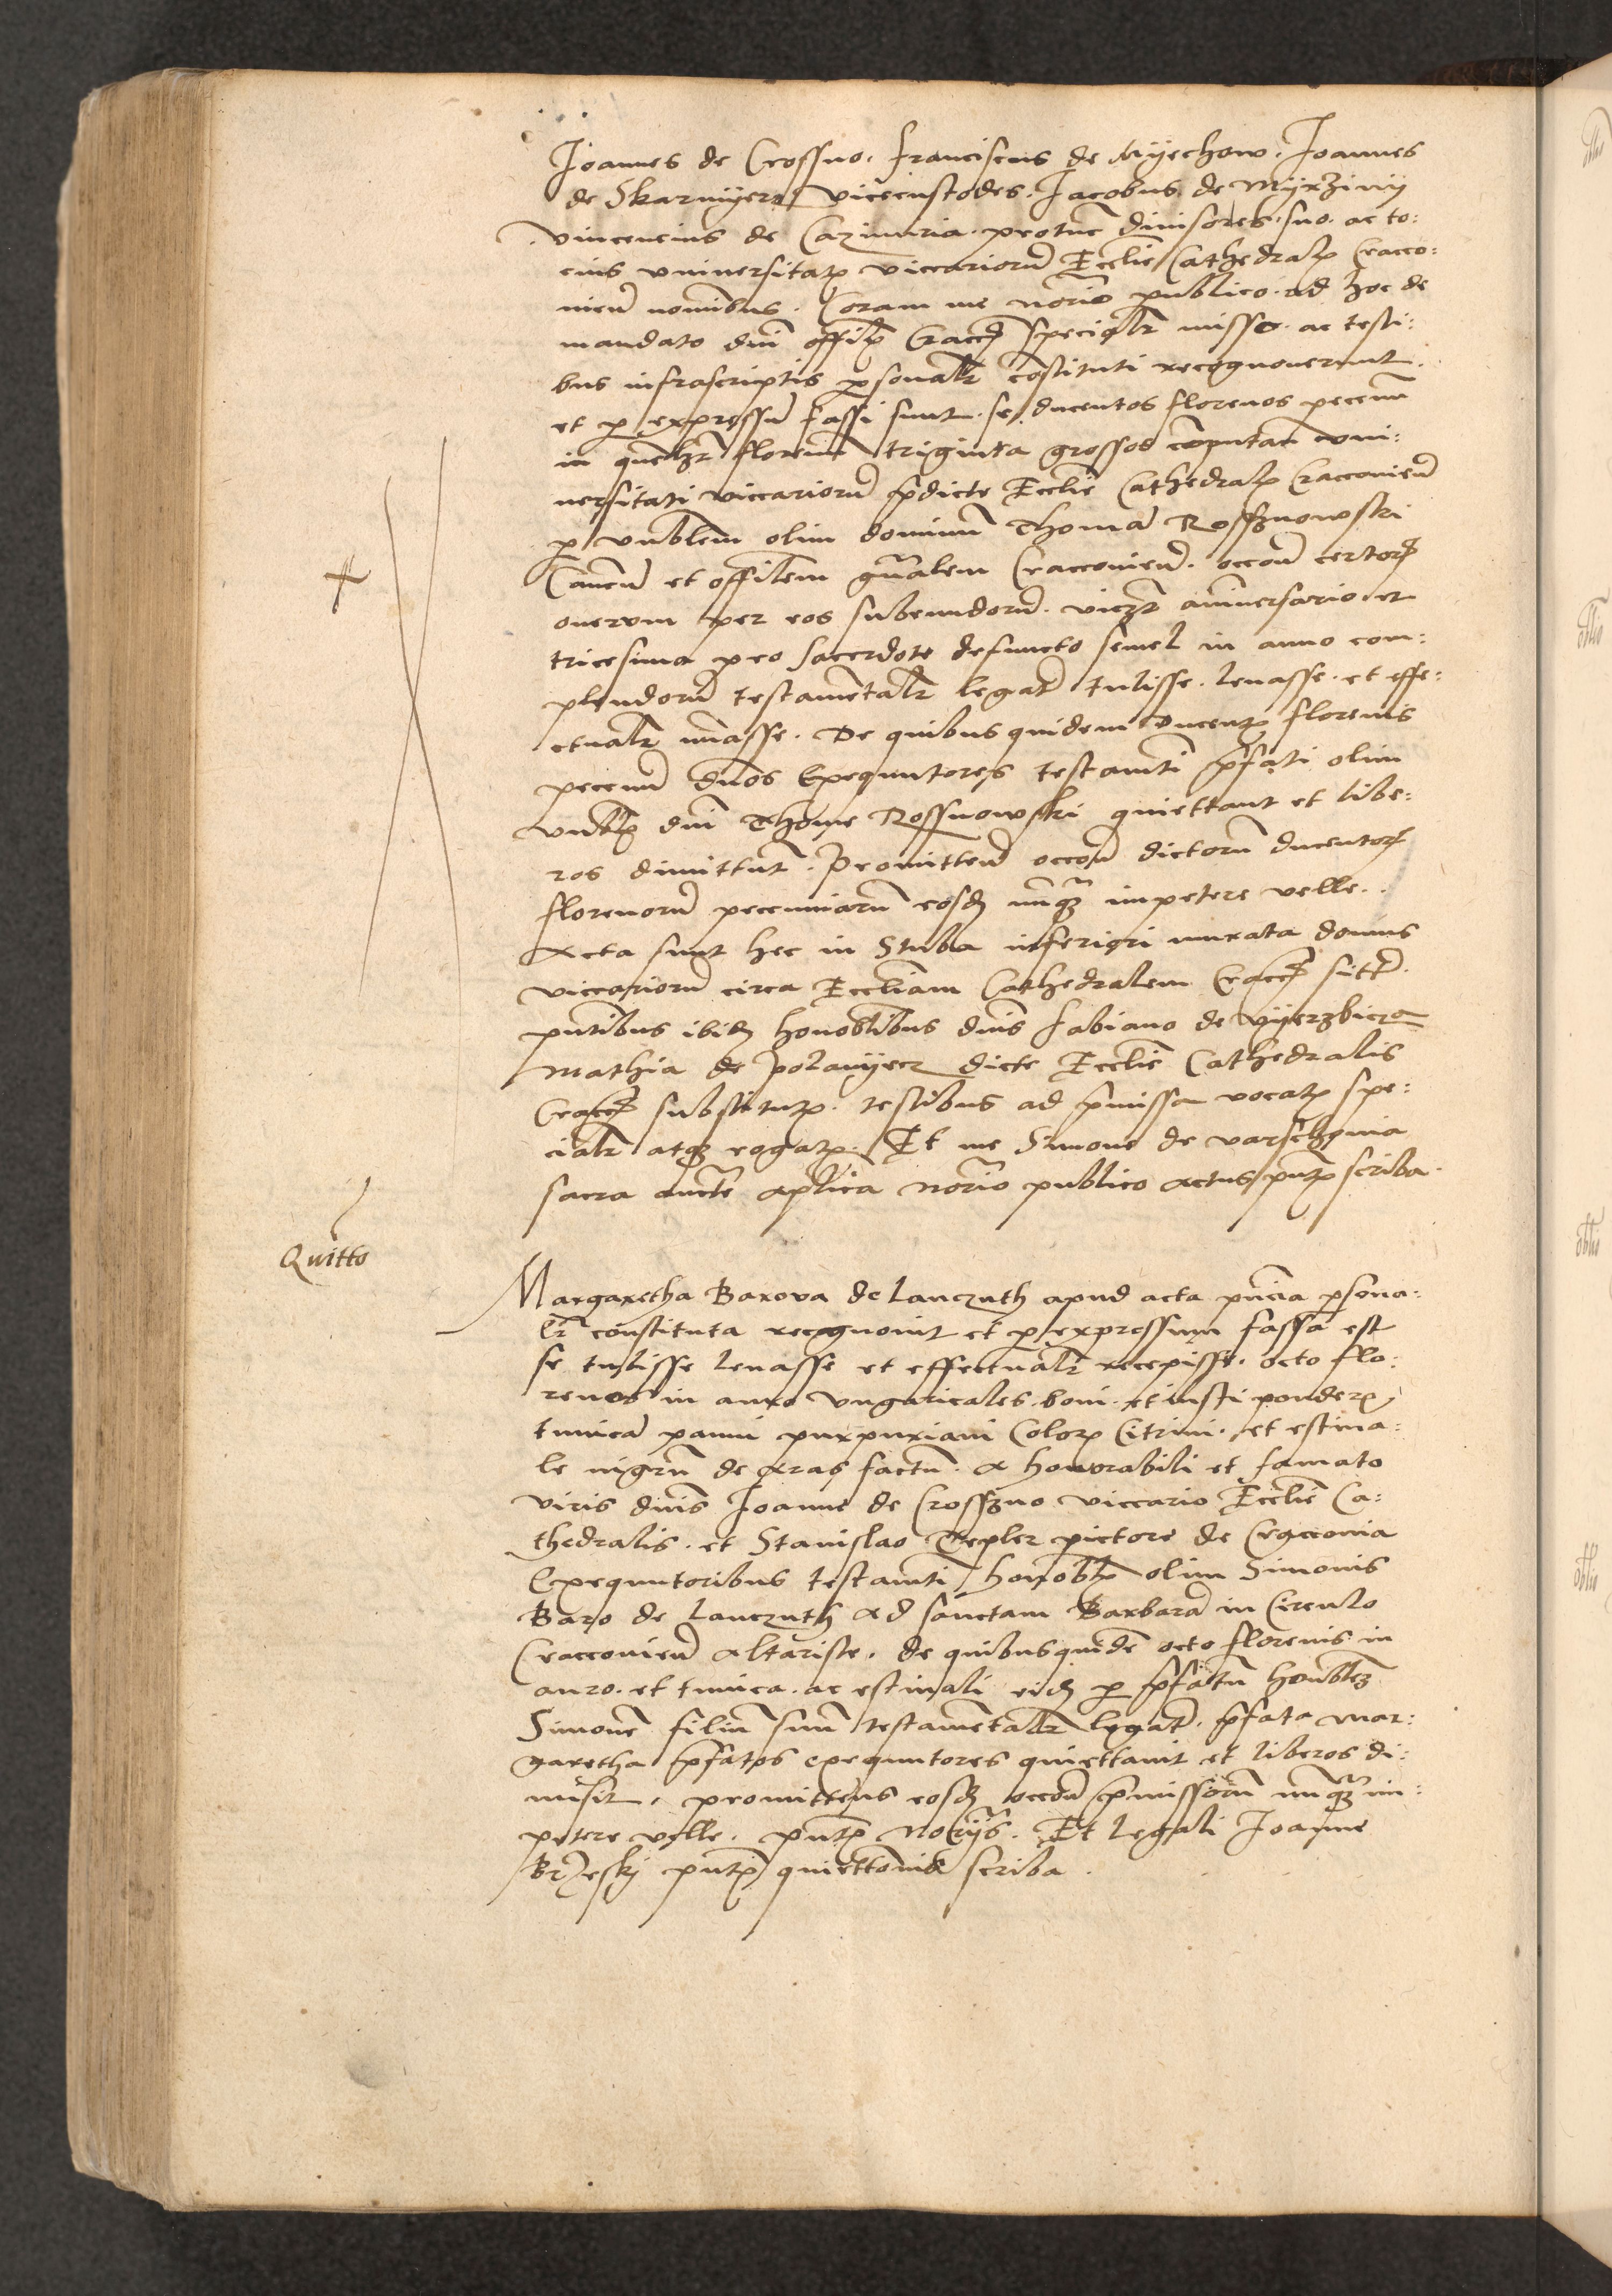 Joannes de Crossno. franciscus de Myechow. Joannes
de Skarmyerz vicecustodes. Jacobus de Myrziny
vincencius de Cazimiria. protunc diuisores. suo. ac to:
cius vniuersitatis viccariorum Ecclie Cathedralis Cracco:
nien nominibus. Coram me notario publico. ad hoc de
mandato dni offilis Cracc specialr misso. ac testi:
bus infrascriptis personalr constituti recognouerunt
et per expressum fassi sunt. se ducentos florenos pecun
in quemlibet florenum triginta grossos computan vni:
uersitati viccariorum predicte Ecclie Cathedralis Cracconien
per vnblem olim dominum Thomam Rosznowski
Canen et offilem gnalem Cracconien. occon certorum
onerum per eos subeundorum. viczt anniuersario et
tricesima pro sacerdote defuncto semel in anno com:
plendorum testamentalr legat tulisse. leuasse. et effe:
ctualr Vmasse. De quibus quidem ducentis florenis
pecun dnos Exequutores testamti prefati olim
vnblis dni Thome Rossnowski quiettant et libe:
ros dimittunt. Promitten occon dictorum ducentorum
florenorum pecuniarum eosdem nunquam impetere velle.
Acta sunt hec in Stuba inferiori murata domus
viccariorum circa Eccliam Cathedralem Cracc sitt.
pntibus ibidem honoblibus dnis fabiano de vyerzbicza
Mathia de Polanyecz dicte Ecclie Cathedralis
Cracc substitutis. testibus ad premissa vocatis spe:
cialr atque rogatis. Et me Simone de varschouia
sacra aucte aplica notario publico actus pntis scriba.
Quitto
Margaretha Barova de Lanczuth apud acta pncia persona:
lr constituta recognouit et per expressum fassa est
se tulisse leuasse et effectualr recepisse. octo flo:
renos in auro vngaricales. boni. et iusti ponderis
tunicam panni purpuriani coloris Citrini. et estina:
le nigrum de Aras factum. A honorabili et famato
viris dnis Joanne de Crosszno viccario Ecclie Ca:
thedralis. et Stanislao Tepler pictore de Cracconia
Exequutoribus testamti honoblis olim Simonis
Baro de Lanczuth ad sanctam Barbaram in Circulo
Cracconien altariste. de quibusquidem octo florenis in
auro. et tunica. ac estinali eidem per prefatum honoblem
Simonem filium suum testamentalr legat. prefata mar:
garetha prefatos exequutores quiettauit et liberos di:
misit. promittens eosdem occon premissorum nunquam im:
petere velle. pntis Notarijs. Et legali Joanne
Brzesky pntis quiettonis scriba.